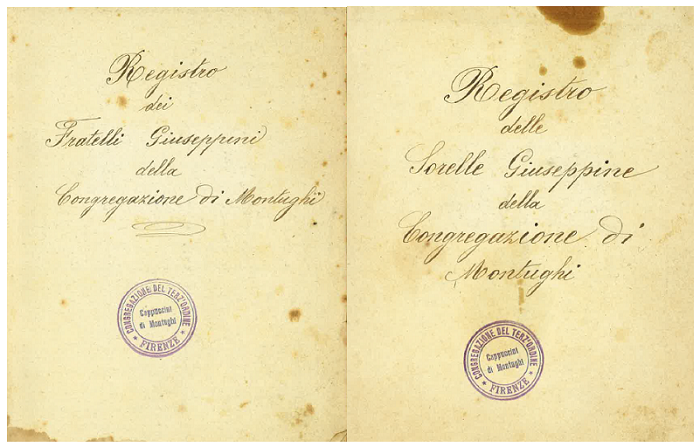 Registro
dei
Fratelli Giuseppini
della
Congregazione di Montughi
CONGREGAZIONE DEL TERZ'ORDINE
Cappuccini
di Montughi
FIRENZE
Registro
delle
Sorelle Giuseppine
della
Congregazione di
Montughi
CONGREGAZIONE DEL TERZ'ORDINE
Cappuccini
di Montughi
FIRENZE